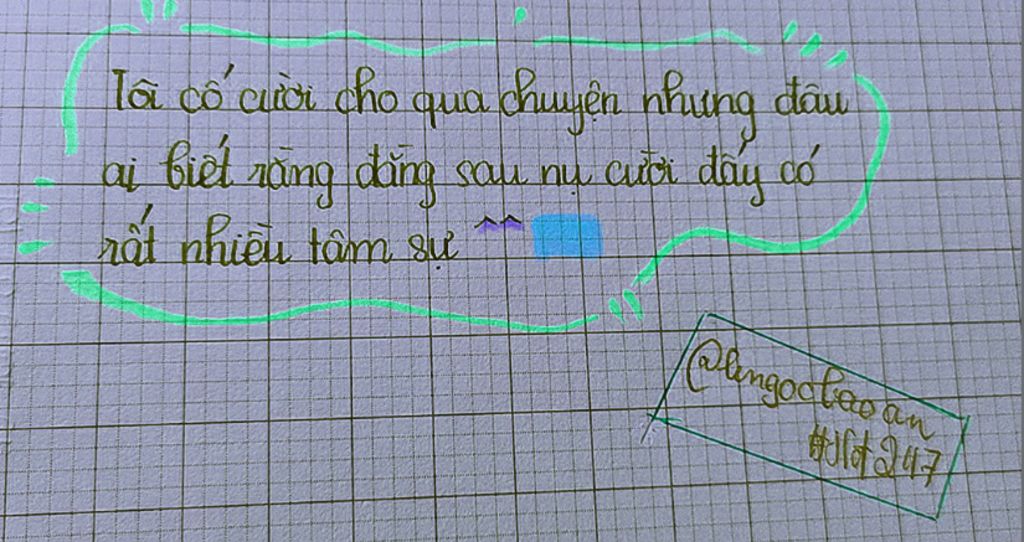 Tôi cố cười cho qua chuyện nhưng đâu
ai biết rằng đằng sau nụ cười đấy có
rất nhiều tâm sự ^^